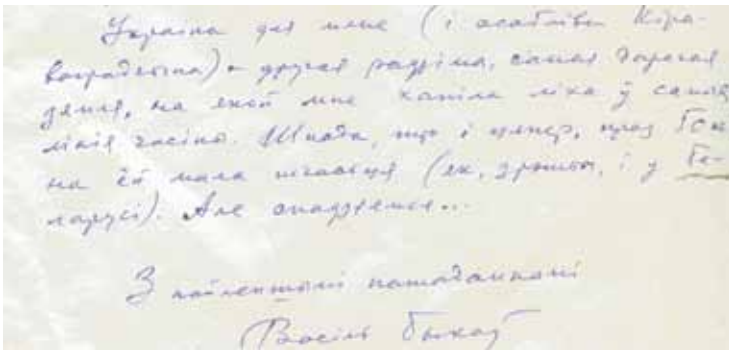 Украіна для мене (і асабліва Кіра-
ваградшчына) - другая радзіма, самая дарагая
зямля, на якой мне хапіла ліха ў самыя
ліхія часіны. Шкада, што і цяпер, праз 50 г.
на ёй мала шчасця (як, зрэшты, і у Бе-
ларусі). Але спадзяемся...
З найлепшымі пажаданнямі
Васіль Быкаў